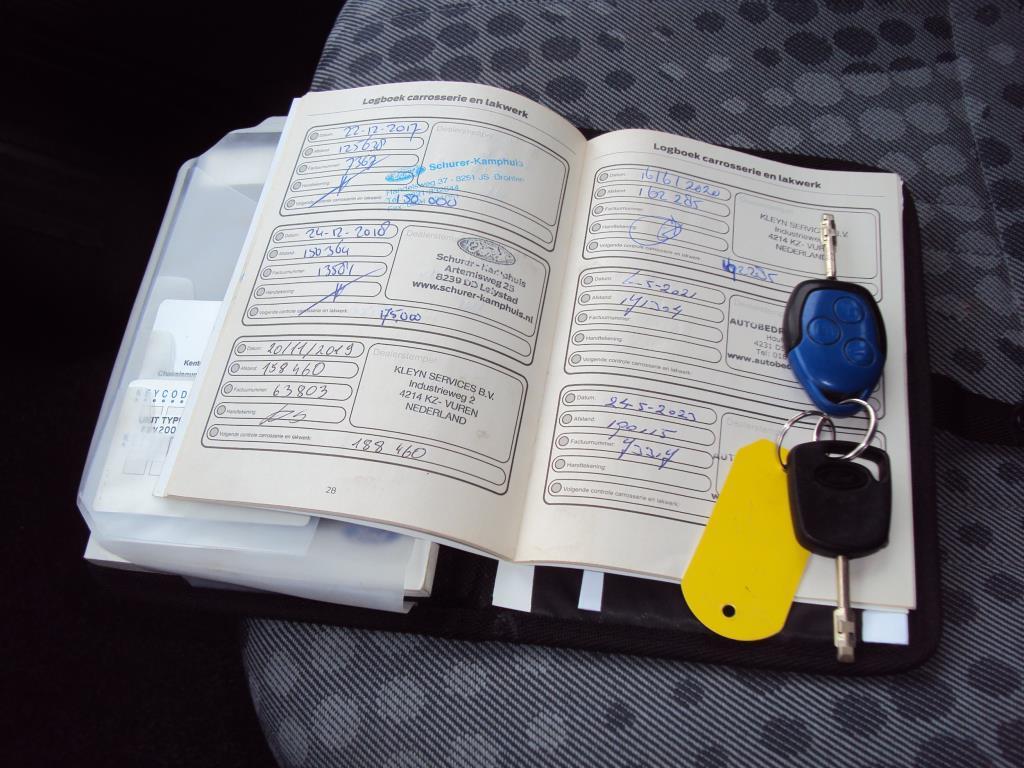 Logboek carrosserie en lakwerk
Datum: 22-12-2017
Afstand: 125628
Factuurnummer: 7367
Handtekening:
Volgende controle carrosserie en lakwerk: 150.000
Dealerstempel
Schurer-Kamphuis
Handelsweg 37 - 8251 JS Dronten
Datum: 24-12-2018
Afstand: 150364
Factuurnummer: 13501
Handtekening:
Volgende controle carrosserie en lakwerk: 175.000
Schurer-Kamphuis
Artemisweg 25
8239 DD Lelystad
www.schurer-kamphuis.nl
Datum: 20/11/2019
Afstand: 158460
Factuurnummer: 63803
Handtekening:
Volgende controle carrosserie en lakwerk: 188 460
Dealerstempel
KLEYN SERVICES B.V.
Industrieweg 2
4214 KZ- VUREN
NEDERLAND
28
Logboek carrosserie en lakwerk
Datum: 16/6/2020
Afstand: 162285
Factuurnummer:
Handtekening:
Volgende controle carrosserie en lakwerk:
KLEYN SERVICES B.V.
Industrieweg 2
4214 KZ- VUREN
NEDERLAND
Datum: -5-2021
Afstand:
Factuurnummer:
Handtekening:
Volgende controle carrosserie en lakwerk:
Dealerstempel
AUTOBEDR
4231 DS
www.autobed
Datum: 24-5-2023
Afstand:
Factuurnummer:
Handtekening:
Volgende controle carrosserie en lakwerk:
KEYCOD
UNIT TYP